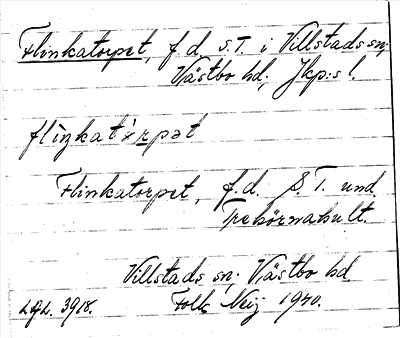 Flinkatorpet, f. d. s.T. i Villstads sn;
Västbo hd; Jkp:s l.
flìŋkatὰrpət
Flinkatorpet, f. d. S. T. und.
Trehörnahult.
Villstads sn; Västbo hd.
L.G.L. 3918. Folk Meij 1940.